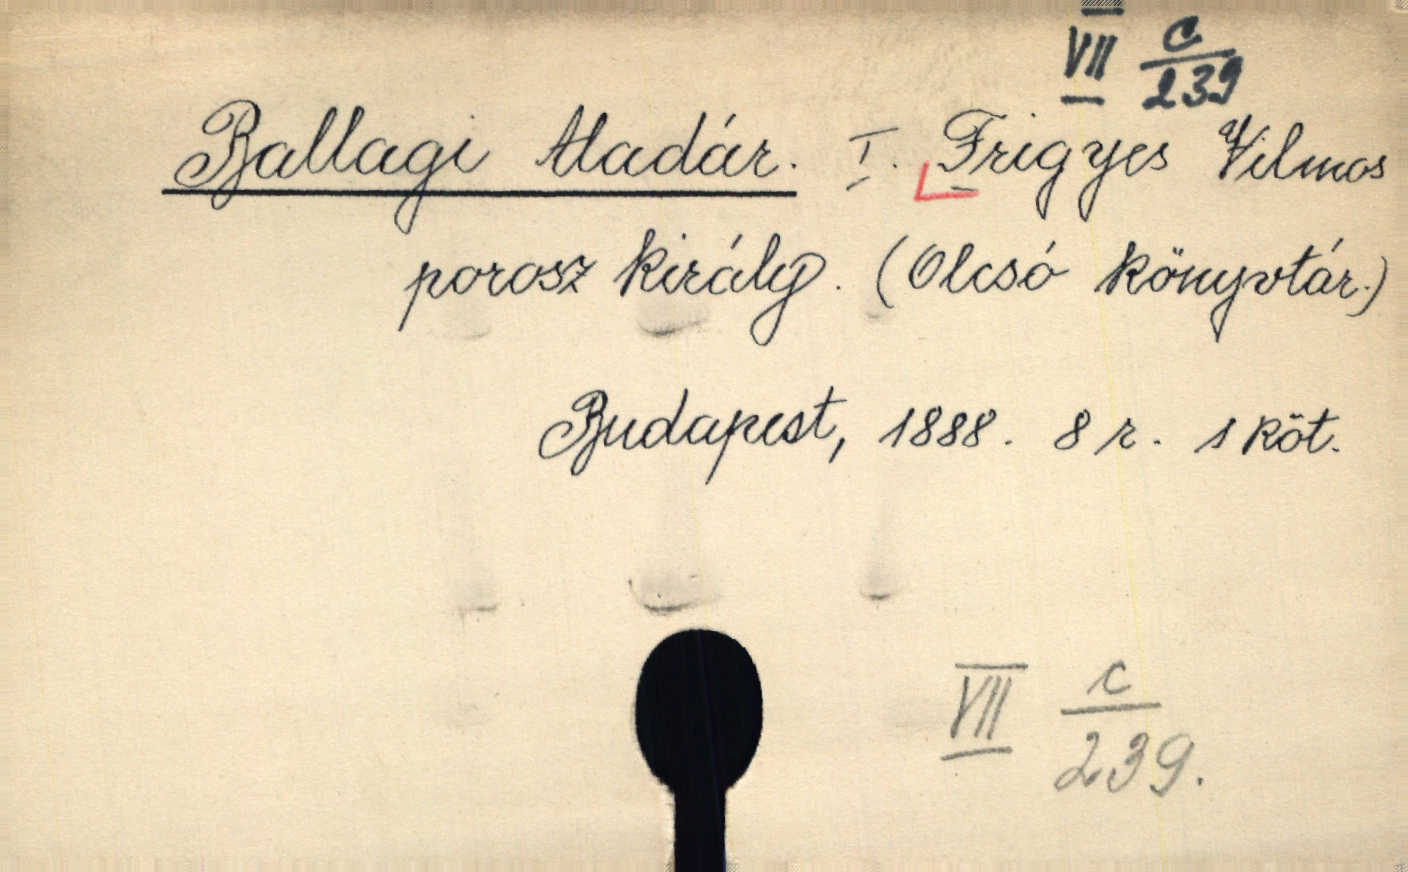 VII c/239
Ballagi Aladár. I. Frigyes Vilmos
porosz király. (Olcsó könyvtár.)
Budapest, 1888. 8 r. 1 köt.
VII c/239.